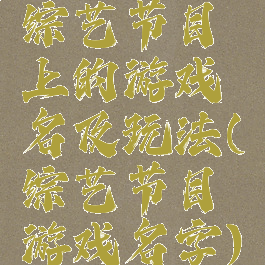 综艺节目
上的游戏
名及玩法(
综艺节目
游戏名字)